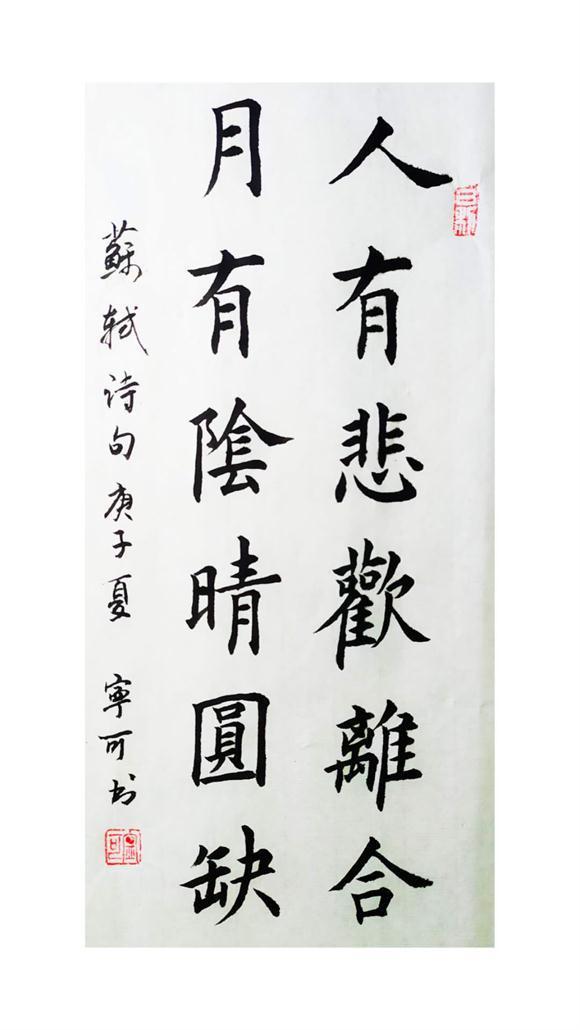 人有悲歡離合
月有陰晴圓缺
蘇軾诗句庚子夏 寧可书